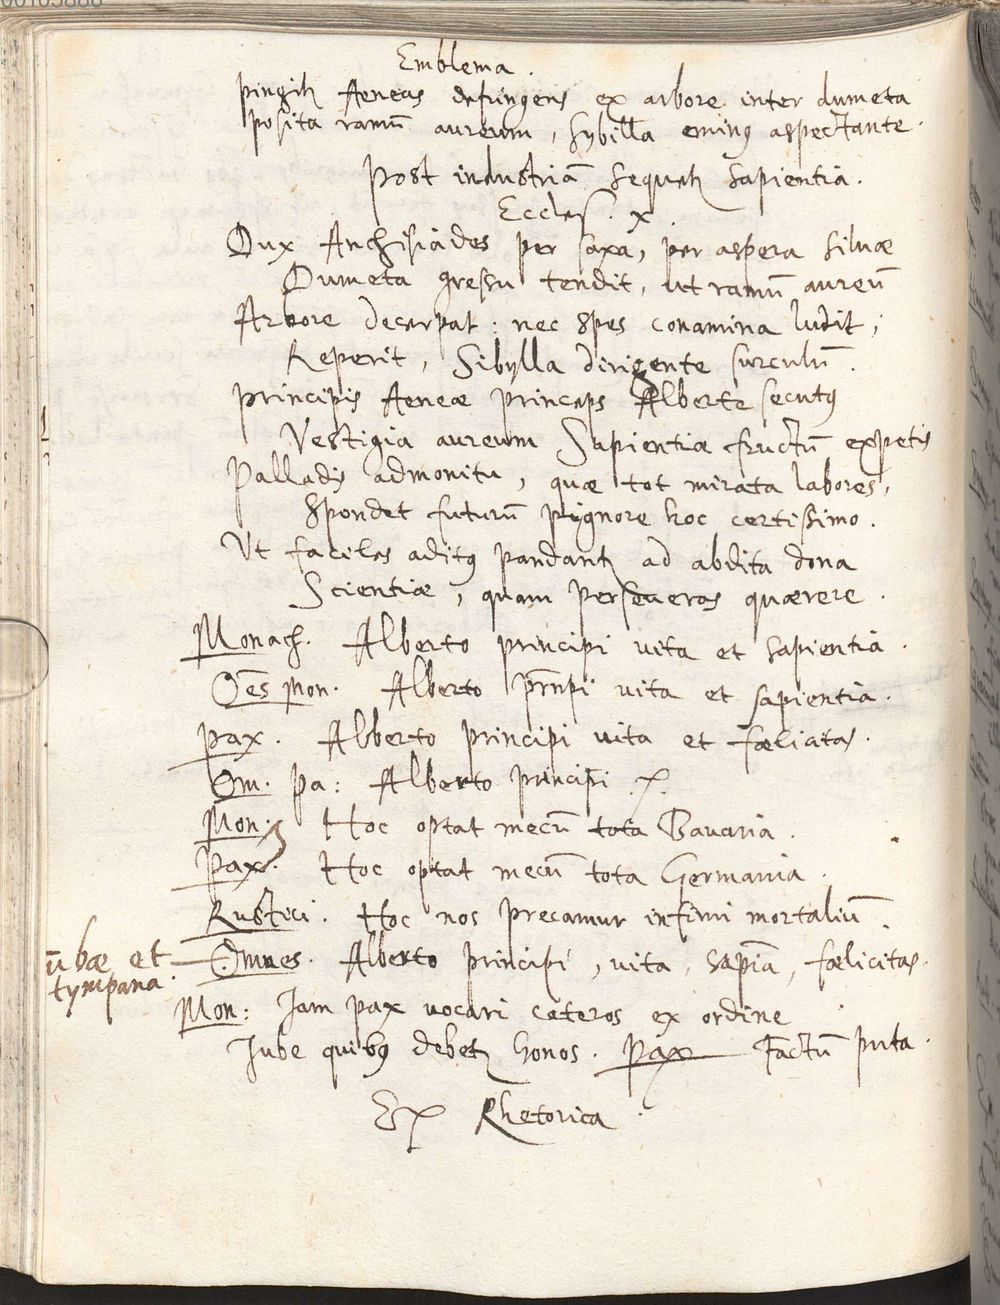 Emblema.
pingitur Aeneas defringens ex arbore inter dumeta
posita ramū aureum, Sybilla eminus aspectante.
Post industriā sequetur sapientia.
Eccles. x.
Dux Anchisiades per saxa, per aspera siluæ
Dumeta gressu tendit, ut ramū aureū
Arbore decerpat: nec spes conamina ludit,
Reperit, Sibylla dirigente surculū.
Principis Aeneæ princeps Alberte secutus
Vestigia aureum Sapientiæ fructū expetis
Palladis admonitu, quæ tot mirata labores,
Spondet futurū pignore hoc certissimo.
Ut faciles aditus pandantur ad abdita dona
Scientiæ, quam perseueras quærere.
Monach. Alberto principi vita et sapientia.
Oēs Mon. Alberto prīnpi vita et sapientia.
Pax. Alberto principi vita et fœlicitas.
Om. pa: Alberto principi
Mon: Hoc optat mecū tota Bauaria.
Pax. Hoc optat mecū tota Germania.
Rustici. Hoc nos precamur infimi mortaliū.
Omnes. Alberto principi, vita, sapīa, fœlicitas.
ūbæ et
tympana.
Mon: Iam pax vocari ceteros ex ordine
Iube quibus debetur honos. Pax Factū puta.
Ex Rhetorica.